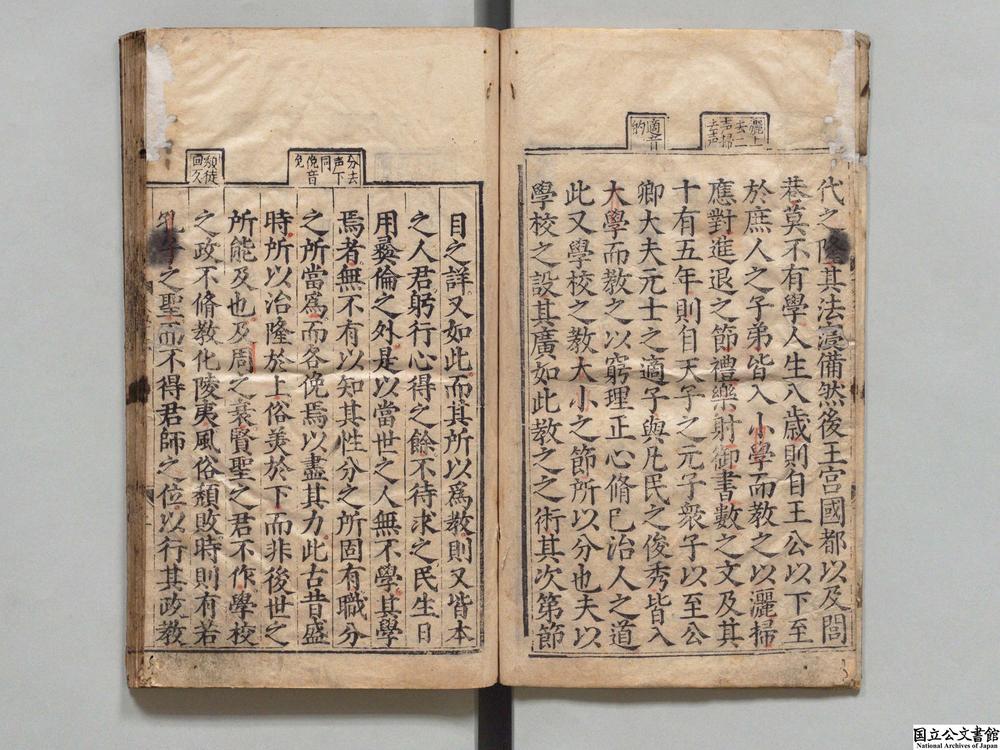 灑上
去二
声掃
去声
適音
的
代之隆其法寖備然後王宮國都以及閭
巷莫不有學人生八歲則自王公以下至
於庶人之子弟皆入小學而教之以灑掃
應對進退之節禮樂射御書數之文及其
十有五年則自天子之元子衆子以至公
卿大夫元士之適子與凡民之俊秀皆入
大學而教之以窮理正心脩己治人之道
此又學校之教大小之節所以分也夫以
學校之設其廣如此教之之術其次第節
分去
声下
同
俛音
免
頹徒
回久
目之詳又如此而其所以爲教則又皆本
之人君躬行心得之餘不待求之民生日
用彛倫之外是以當世之人無不學其學
焉者無不有以知其性分之所固有職分
之所當爲而各俛焉以盡其力此古昔盛
時所以治隆於上俗美於下而非後世之
所能及也及周之衰賢聖之君不作學校
之政不脩教化陵夷風俗頹敗時則有若
孔子之聖而不得君師之位以行其政教
国立公文書館
National Archives of Japan